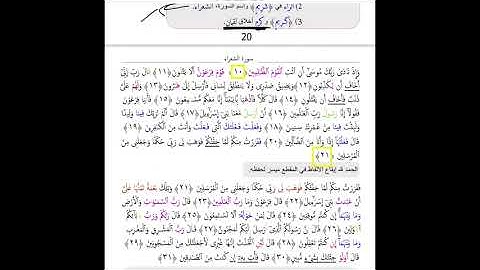 2) الراء في ﴿كَرِيمٍ﴾ واسم السورة، الشعراء.
3) ﴿كَرِيمٍ﴾ وكرم أخلاق لقمان.
20
سورة الشعراء
وَإِذْ نَادَىٰ رَبُّكَ مُوسَىٰ أَنِ ائْتِ الْقَوْمَ الظَّالِمِينَ ﴿١٠﴾ قَوْمَ فِرْعَوْنَ أَلَا يَتَّقُونَ ﴿١١﴾ قَالَ رَبِّ إِنِّي
أَخَافُ أَن يُكَذِّبُونِ ﴿١٢﴾ وَيَضِيقُ صَدْرِي وَلَا يَنطَلِقُ لِسَانِي فَأَرْسِلْ إِلَىٰ هَٰرُونَ ﴿١٣﴾ وَلَهُمْ عَلَيَّ
ذَنبٌ فَأَخَافُ أَن يَقْتُلُونِ ﴿١٤﴾ قَالَ كَلَّا فَاذْهَبَا بِآيَاتِنَا إِنَّا مَعَكُم مُّسْتَمِعُونَ ﴿١٥﴾ فَأْتِيَا فِرْعَوْنَ
فَقُولَا إِنَّا رَسُولُ رَبِّ الْعَالَمِينَ ﴿١٦﴾ أَنْ أَرْسِلْ مَعَنَا بَنِي إِسْرَائِيلَ ﴿١٧﴾ قَالَ أَلَمْ نُرَبِّكَ فِينَا وَلِيدًا
وَلَبِثْتَ فِينَا مِنْ عُمُرِكَ سِنِينَ ﴿١٨﴾ وَفَعَلْتَ فَعْلَتَكَ الَّتِي فَعَلْتَ وَأَنتَ مِنَ الْكَافِرِينَ ﴿١٩﴾
قَالَ فَعَلْتُهَا إِذًا وَأَنَا مِنَ الضَّالِّينَ ﴿٢٠﴾ فَفَرَرْتُ مِنكُمْ لَمَّا خِفْتُكُمْ فَوَهَبَ لِي رَبِّي حُكْمًا وَجَعَلَنِي مِنَ
الْمُرْسَلِينَ ﴿٢١﴾
الحمد لله إيقاع الألفاظ في المقطع ميسر لحفظه.
فَفَرَرْتُ مِنكُمْ لَمَّا خِفْتُكُمْ فَوَهَبَ لِي رَبِّي حُكْمًا وَجَعَلَنِي مِنَ الْمُرْسَلِينَ ﴿٢١﴾ وَتِلْكَ نِعْمَةٌ تَمُنُّهَا عَلَيَّ
أَنْ عَبَّدتَّ بَنِي إِسْرَائِيلَ ﴿٢٢﴾ قَالَ فِرْعَوْنُ وَمَا رَبُّ الْعَالَمِينَ ﴿٢٣﴾ قَالَ رَبُّ السَّمَاوَاتِ وَالْأَرْضِ
وَمَا بَيْنَهُمَا إِن كُنتُم مُّوقِنِينَ ﴿٢٤﴾ قَالَ لِمَنْ حَوْلَهُ أَلَا تَسْتَمِعُونَ ﴿٢٥﴾ قَالَ رَبُّكُمْ وَرَبُّ آبَائِكُمُ
الْأَوَّلِينَ ﴿٢٦﴾ قَالَ إِنَّ رَسُولَكُمُ الَّذِي أُرْسِلَ إِلَيْكُمْ لَمَجْنُونٌ ﴿٢٧﴾ قَالَ رَبُّ الْمَشْرِقِ وَالْمَغْرِبِ
وَمَا بَيْنَهُمَا إِن كُنتُمْ تَعْقِلُونَ ﴿٢٨﴾ قَالَ لَئِنِ اتَّخَذْتَ إِلَٰهًا غَيْرِي لَأَجْعَلَنَّكَ مِنَ الْمَسْجُونِينَ ﴿٢٩﴾
قَالَ أَوَلَوْ جِئْتُكَ بِشَيْءٍ مُّبِينٍ ﴿٣٠﴾ قَالَ فَأْتِ بِهِ إِن كُنتَ مِنَ الصَّادِقِينَ ﴿٣١﴾